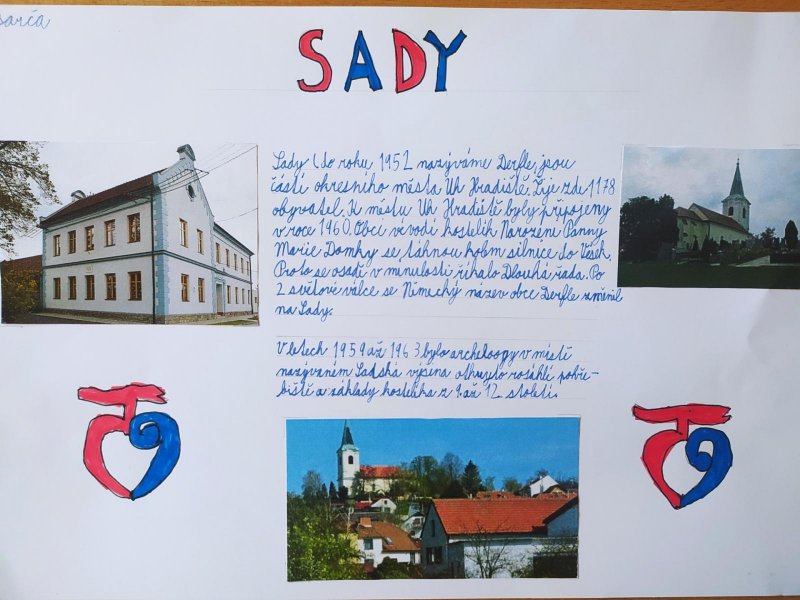 SADY
Sady (do roku 1952 nazýváme Derfle, jsou
částí okresního města Uh Hradiště. Žije zde 1178
obyvatel. K městu Uh Hradiště byly připojeny
v roce 1960. Obci vévodí kostelík Narození Panny
Marie Domky se táhnou kolem silnice do Vések,
Proto se osadě v minulosti říkalo Dlouhá řada. Po
2 světové válce se Německý název obce Derfle změnil
na Sady.
V letech 1959 až 1963 bylo archeloopy v místě
nazývaném Sadská výšina otkryto rosáhlé pohře-
biště a základy kostelíka z 9. až 12. století.